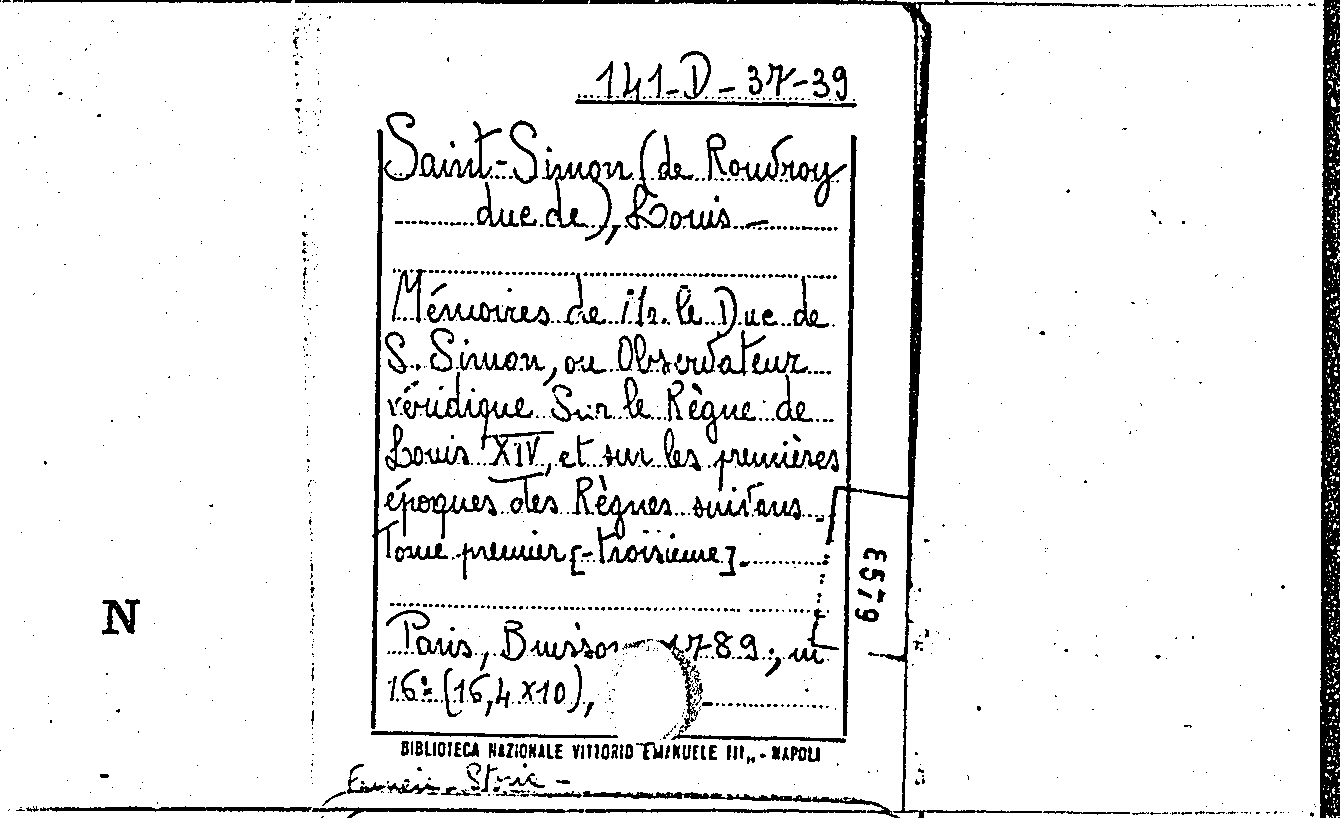 141-D-37-39
Saint-Simon (de Rouvroy
duc de), Louis —
Mémoires de M. le Duc de
S. Simon, ou Observateur
véridique Sur le Règne de
Louis XIV, et sur les premières
époques des Règnes suivans.
Tome premier [-troisieme].
Paris, Buisson 1789; in
16º (16,4 x10),
BIBLIOTECA NAZIONALE VITTORIO EMANUELE III,, - NAPOLI
N